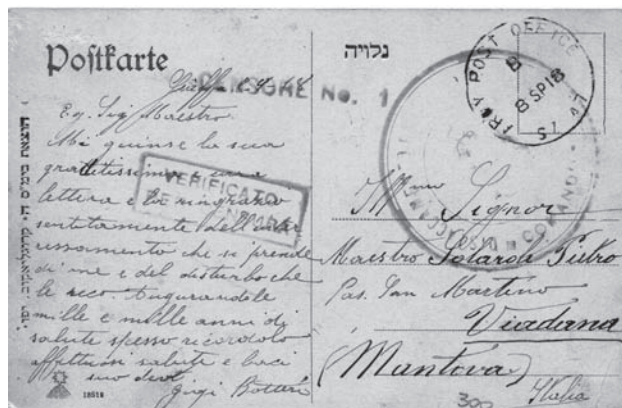 Postkarte
גלויה
CENSORE No. 1
ARMY POST OFFICE
8 SP 18
Giaffa
Eg. Sig. Maestro
Mi giunse la sua
gratitissima e cara
lettera e La ringrazio
sentitamente dell'inte
ressamento che si prende
di me e del disturbo che
le reco. Augurandole
mille e mille anni di
salute spesso ricordolo
affettuosi salute e baci
suo devot
Gigi Botteri
VERIFICATO
CENSURA
DISTACCAMENTO
COMANDO
Ill.mo Signor
Maestro Solaroli Pietro
Pas. San Martino
Viadana
(Mantova)
Italia
300
18518